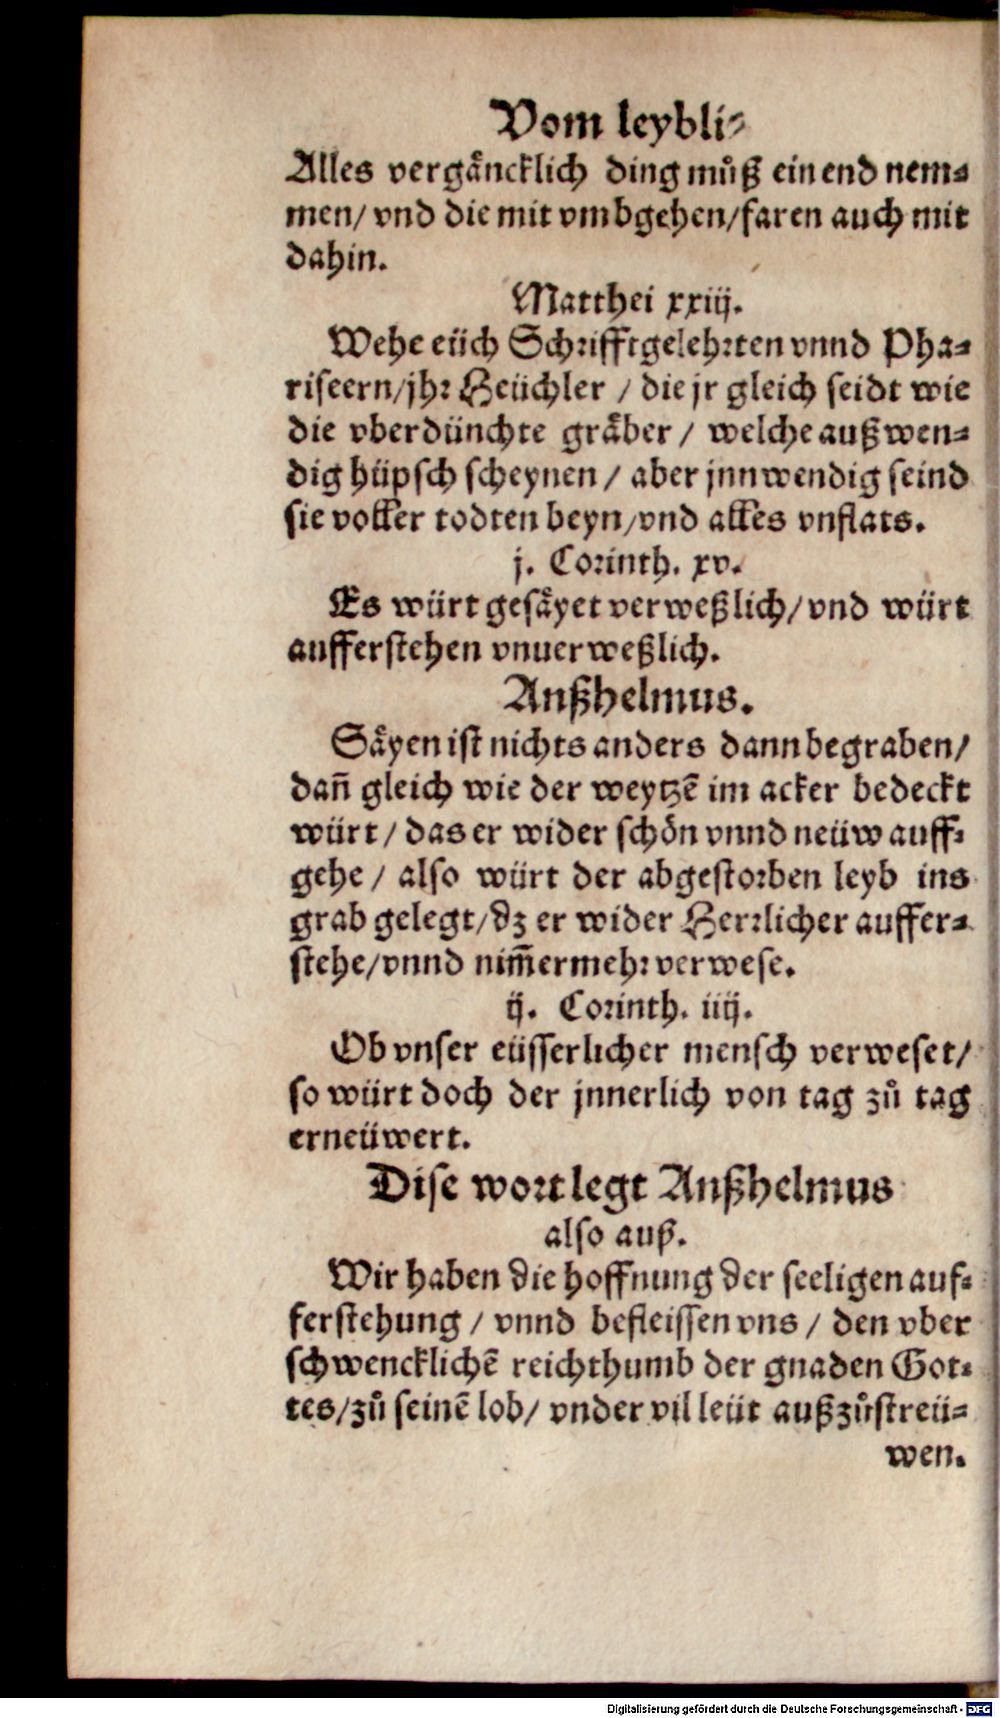 Vom leybli-
Alles vergaͤncklich ding muͦß ein end nem-
men/ vnd die mit vmbgehen/faren auch mit
dahin.
Matthei xxiij.
Wehe euͤch Schrifftgelehrten vnnd Pha-
riseern/jhr Heuͤchler / die jr gleich seidt wie
die vberduͤnchte graͤber / welche außwen-
dig huͤpsch scheynen / aber jnnwendig seind
sie voller todten beyn/vnd alles vnflats.
j. Corinth. xv.
Es wuͤrt gesaͤyet verweßlich/vnd wuͤrt
aufferstehen vnuerweßlich.
Anßhelmus.
Saͤyen ist nichts anders dann begraben/
dañ gleich wie der weytzē im acker bedeckt
wuͤrt / das er wider schoͤn vnnd neuͤw auff-
gehe / also wuͤrt der abgestorben leyb ins
grab gelegt/dz er wider Herrlicher auffer-
stehe/vnnd nim̄ermehr verwese.
ij. Corinth. iiij.
Ob vnser euͤsserlicher mensch verweset/
so wuͤrt doch der jnnerlich von tag zuͦ tag
erneuͤwert.
Dise wort legt Anßhelmus
also auß.
Wir haben die hoffnung der seeligen auf-
ferstehung / vnnd befleissen vns / den vber
schwencklichē reichthumb der gnaden Got-
tes/zuͦ seinē lob/ vnder vil leuͤt außzuͦstreuͤ-
wen.
Digitalisierung gefördert durch die Deutsche Forschungsgemeinschaft - DFG